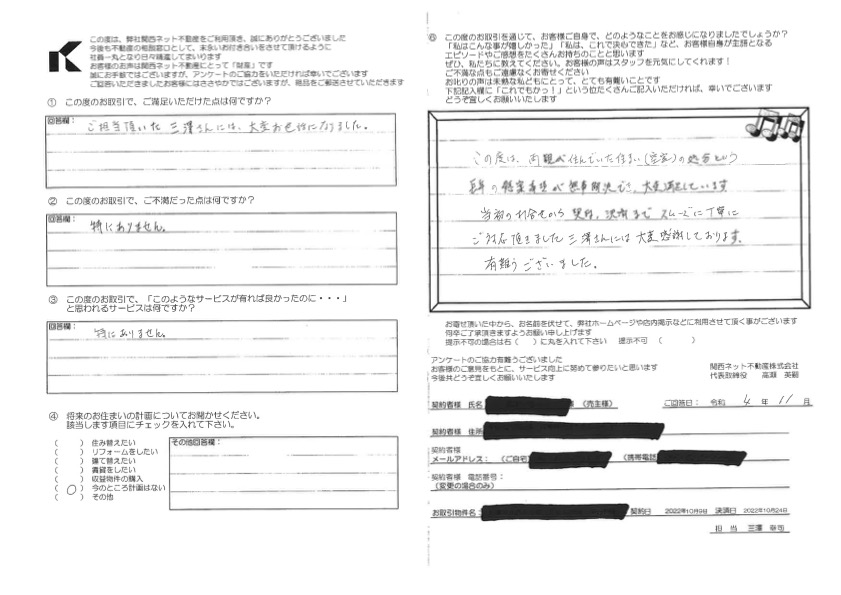 この度は、弊社関西ネット不動産をご利用頂き、誠にありがとうございました
今後も不動産の相談窓口として、末永いお付き合いをさせて頂けるように
社員一丸となり日々精進してまいります
お客様のお声は関西ネット不動産にとって「財産」です
誠にお手数ではございますが、アンケートのご協力をいただければ幸いでございます
ご回答いただきましたお客様にはささやかではございますが、粗品をご郵送させていただきます
① この度のお取引で、ご満足いただけた点は何ですか?
回答欄:
ご担当頂いた三澤さんには、大変お世話になりました。
② この度のお取引で、ご不満だった点は何ですか?
回答欄:
特にありません。
③ この度のお取引で、「このようなサービスが有れば良かったのに・・・」
と思われるサービスは何ですか?
回答欄:
特にありません。
④ 将来のお住まいの計画についてお聞かせください。
該当します項目にチェックを入れて下さい。
( ) 住み替えたい
( ) リフォームをしたい
( ) 建て替えたい
( ) 賃貸をしたい
( ) 収益物件の購入
( ○ ) 今のところ計画はない
( ) その他
その他回答欄:
⑥ この度のお取引を通じて、お客様ご自身で、どのようなことをお感じになりましたでしょうか?
「私はこんな事が嬉しかった」「私は、これで決心できた」など、お客様自身が主語となる
エピソードやご感想をたくさんお持ちのことと思います
ぜひ、私たちに教えてください。お客様の声はスタッフを元気にしてくれます!
ご不満な点もご遠慮なくお寄せください
お叱りの声は未熟な私どもにとって、とても有難いことです
下記記入欄に「これでもかっ!」という位たくさんご記入いただければ、幸いでございます
どうぞ宜しくお願いいたします
この度は、両親が住んでいた住まい(空家)の処分という
長年の懸案事項が無事解決でき、大変満足しています
当初の打合せから契約、決済までスムーズに丁寧に
ご対応頂きました三澤さんには大変感謝しております。
有難うございました。
お寄せ頂いた中から、お名前を伏せて、弊社ホームページや店内掲示などに利用させて頂く事がございます
何卒ご了承頂きますようお願い申し上げます
提示不可の場合は右( )に丸を入れて下さい 提示不可 ( )
アンケートのご協力有難うございました
お客様のご意見をもとに、サービス向上に努めて参りたいと思います
今後共どうぞ宜しくお願いいたします
関西ネット不動産株式会社
代表取締役 高瀬 英嗣
契約者様 氏名 様 (売主様) ご回答日: 令和 4 年 11 月
契約者様 住所
契約者様
メールアドレス: (ご自宅) (携帯電話)
契約者様 電話番号:
(変更の場合のみ)
お取引物件名: 契約日 2022年10月9日 決済日 2022年10月24日
担 当 三澤